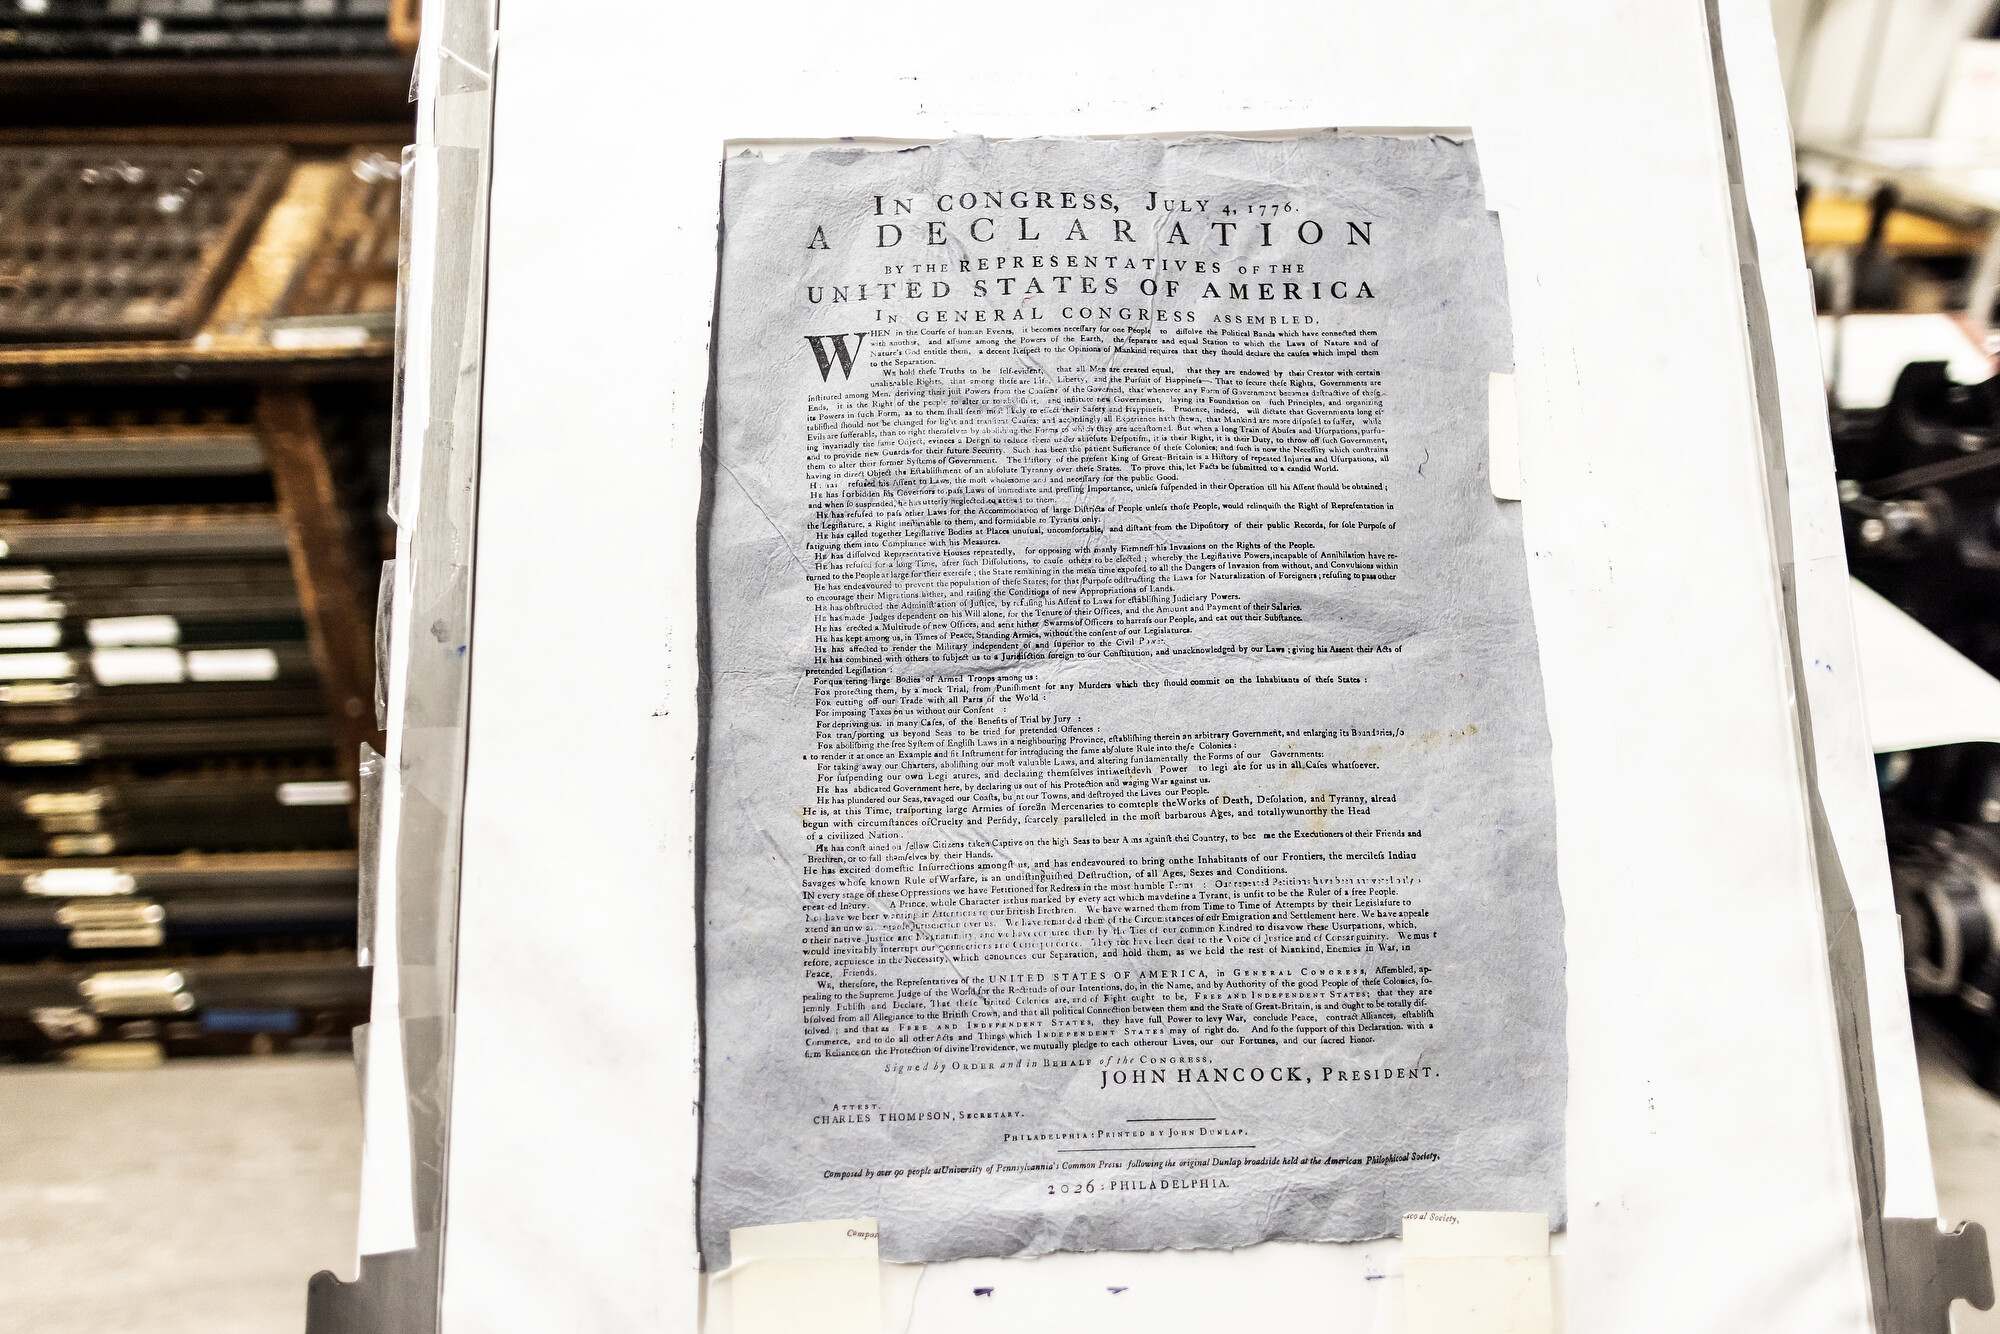 IN CONGRESS, JULY 4, 1776.
A DECLARATION
BY THE REPRESENTATIVES OF THE
UNITED STATES OF AMERICA
IN GENERAL CONGRESS ASSEMBLED.
WHEN in the Courſe of human Events, it becomes neceſſary for one People to diſſolve the Political Bands which have connected them
with another, and aſſume among the Powers of the Earth, the ſeparate and equal Station to which the Laws of Nature and of
Nature's God entitle them, a decent Reſpect to the Opinions of Mankind requires that they ſhould declare the cauſes which impel them
to the Separation.
WE hold theſe Truths to be ſelf-evident, that all Men are created equal, that they are endowed by their Creator with certain
unalienable Rights, that among theſe are Life, Liberty, and the Purſuit of Happineſs—That to ſecure theſe Rights, Governments are
inſtituted among Men, deriving their juſt Powers from the Conſent of the Governed, that whenever any Form of Government becomes deſtructive of theſe
Ends, it is the Right of the people to alter or to aboliſh it, and inſtitute new Government, laying its Foundation on ſuch Principles, and organizing
its Powers in ſuch Form, as to them ſhall ſeem moſt likely to effect their Safety and Happineſs. Prudence, indeed, will dictate that Governments long eſ-
tabliſhed ſhould not be changed for light and tranſient Cauſes; and accordingly all Experience hath ſhewn, that Mankind are more diſpoſed to ſuffer, while
Evils are ſufferable, than to right themſelves by aboliſhing the Forms to which they are accuſtomed. But when a long Train of Abuſes and Uſurpations, purſu-
ing invariably the ſame Object, evinces a Deſign to reduce them under abſolute Deſpotiſm, it is their Right, it is their Duty, to throw off ſuch Government,
and to provide new Guards for their future Security. Such has been the patient Sufferance of theſe Colonies; and ſuch is now the Neceſſity which conſtrains
them to alter their former Syſtems of Government. The Hiſtory of the preſent King of Great-Britain is a Hiſtory of repeated Injuries and Uſurpations, all
having in direct Object the Eſtabliſhment of an abſolute Tyranny over theſe States. To prove this, let Facts be ſubmitted to a candid World.
refuſed his Aſſent to Laws, the moſt wholeſome and and neceſſary for the public Good.
HE has forbidden his Governors to paſs Laws of immediate and preſſing Importance, unleſs ſuſpended in their Operation till his Aſſent ſhould be obtained;
and when ſo suſpended, he has utterly neglected to attend to them.
HE has refuſed to paſs other Laws for the Accommodation of large Diſtricts of People unleſs thoſe People, would relinquiſh the Right of Repreſentation in
the Legiſlature, a Right ineſtimable to them, and formidable to Tyrants only.
HE has called together Legiſlative Bodies at Places unuſual, uncomfortable, and diſtant from the Dipoſitory of their public Records, for ſole Purpoſe of
fatiguing them into Compliance with his Meaſures.
HE has diſſolved Repreſentative Houſes repeatedly, for oppoſing with manly Firmneſſ his Invaſions on the Rights of the People.
HE has refuſed for a long Time, after ſuch Diſſolutions, to cauſe others to be elected; whereby the Legiſlative Powers, incapable of Annihilation have re-
turned to the People at large for their exerciſe; the State remaining in the mean time expoſed to all the Dangers of Invaſion from without, and Convulſions within
He has endeavoured to prevent the population of theſe States; for that Purpoſe odſtructing the Laws for Naturalization of Foreigners; refuſing to paſs other
to encourage their Migrations hither, and raiſing the Conditions of new Appropriations of Lands.
HE has obſtructed the Adminiſtration of Juſtice, by refuſing his Aſſent to Laws for eſtabliſhing Judiciary Powers.
HE has made Judges dependent on his Will alone, for the Tenure of their Offices, and the Amount and Payment of their Salaries.
HE has erected a Multitude of new Offices, and sent hither Swarms of Officers to harraſs our People, and eat out their Subſtance.
HE has kept among us, in Times of Peace, Standing Armies, without the conſent of our Legislatures.
HE has affected to render the Military independent of and ſuperior to the Civil Power.
HE has combined with others to ſubject us to a Juriſdiction foreign to our Conſtitution, and unacknowledged by our Laws; giving his Assent their Acts of
pretended Legiſlation:
For qua tering large Bodies of Armed Troops among us:
FOR protecting them, by a mock Trial, from Puniſhment for any Murders which they ſhould commit on the Inhabitants of theſe States:
FOR cutting off our Trade with all Parts of the Wo'ld:
For impoſing Taxes on us without our Conſent :
For depriving us. in many Caſes, of the Benefits of Trial by Jury :
FOR tranſporting us beyond Seas to be tried for pretended Offences :
FOR aboliſhing the free Syſtem of Engliſh Laws in a neighbouring Province, eſtabliſhing therein an arbitrary Government, and enlarging its Boundaries, ſo
a to render it at once an Example and fit Inſtrument for introducing the ſame abſolute Rule into theſe Colonies:
For taking away our Charters, aboliſhing our moſt valuable Laws, and altering fundamentally the Forms of our Governments:
For ſuſpending our own Legi atures, and declaring themſelves Power to legi ate for us in all Caſes whatſoever.
HE has abdicated Government here, by declaring us out of his Protection and waging War against us.
HE has plundered our Seas, ravaged our Coaſts, bu nt our Towns, and deſtroyed the Lives our People.
He is, at this Time, traſporting large Armies of Mercenaries to comteple theWorks of Death, Deſolation, and Tyranny, alread
begun with circumſtances ofCruelty and Perfidy, ſcarcely paralleled in the moſt barbarous Ages, and totallywunorthy the Head
of a civilized Nation.
HE has conſt ained our fellow Citizens taken Captive on the high Seas to bear A ms againſt thei Country, to bec me the Executioners of their Friends and
Brethren, or to fall themſelves by their Hands.
He has excited domeſtic Inſurrections amongſt us, and has endeavoured to bring onthe Inhabitants of our Frontiers, the mercileſs Indian
Savages whoſe known Rule of Warfare, is an undiſtinguiſhed Deſtruction, of all Ages, Sexes and Conditions.
IN every stage of theſe Oppreſſions we have Petitioned for Redreſs in the moſt humble Terms : Our repeated Petitions have been
A Prince, whoſe Character isthus marked by every act which maydefine a Tyrant, is unfit to be the Ruler of a free People.
have we been wanting in Attentions to our British Brethren. We have warned them from Time to Time of Attempts by their Legislature to
xtend an Jurisdiction over us. We have reminded them of the Circumſtances of our Emigration and Settlement here. We have appeale
o their native Juſtice and Magnanimity, and we have them by the Ties of our common Kindred to disavow these Uſurpations, which,
would inevitably interrupt our Connections and Correspondence. They too have been deaf to the Voice of Juſtice and of Conſanguinity. We mus t
refore, acquieſce in the Neceſſity, which denounces our Separation, and hold them, as we hold the reſt of Mankind, Enemies in War, in
Peace, Friends.
WE, therefore, the Repreſentatives of the UNITED STATES OF AMERICA, in GENERAL CONGRESS, Aſſembled, ap-
pealing to the Supreme Judge of the World for the Rectitude of our Intentions, do, in the Name, and by Authority of the good People of theſe Colonies, ſo-
lemnly Publiſh and Declare, That theſe United Colonies are, and of Right ought to be, FREE AND INDEPENDENT STATES; that they are
bſolved from all Allegiance to the Britiſh Crown, and that all political Connection between them and the State of Great-Britain, is and ought to be totally diſ-
ſolved; and that as FREE AND INDEPENDENT STATES, they have full Power to levy War, conclude Peace, contract Alliances, eſtabliſh
Commerce, and to do all other Acts and Things which INDEPENDENT STATES may of right do. And ſo the ſupport of this Declaration. with a
firm Reliance on the Protection of divine Providence, we mutually pledge to each otherour Lives, our our Fortunes, and our ſacred Honor.
Signed by ORDER and in BEHALF of the CONGRESS,
JOHN HANCOCK, PRESIDENT.
ATTEST.
CHARLES THOMPSON, SECRETARY.
PHILADELPHIA: PRINTED BY JOHN DUNLAP.
Composed by over 90 people atUniversity of Pennsylvania's Common Press following the original Dunlap broadside held at the American Philophicoal Society,
2026: PHILADELPHIA.
Compos
al Society,